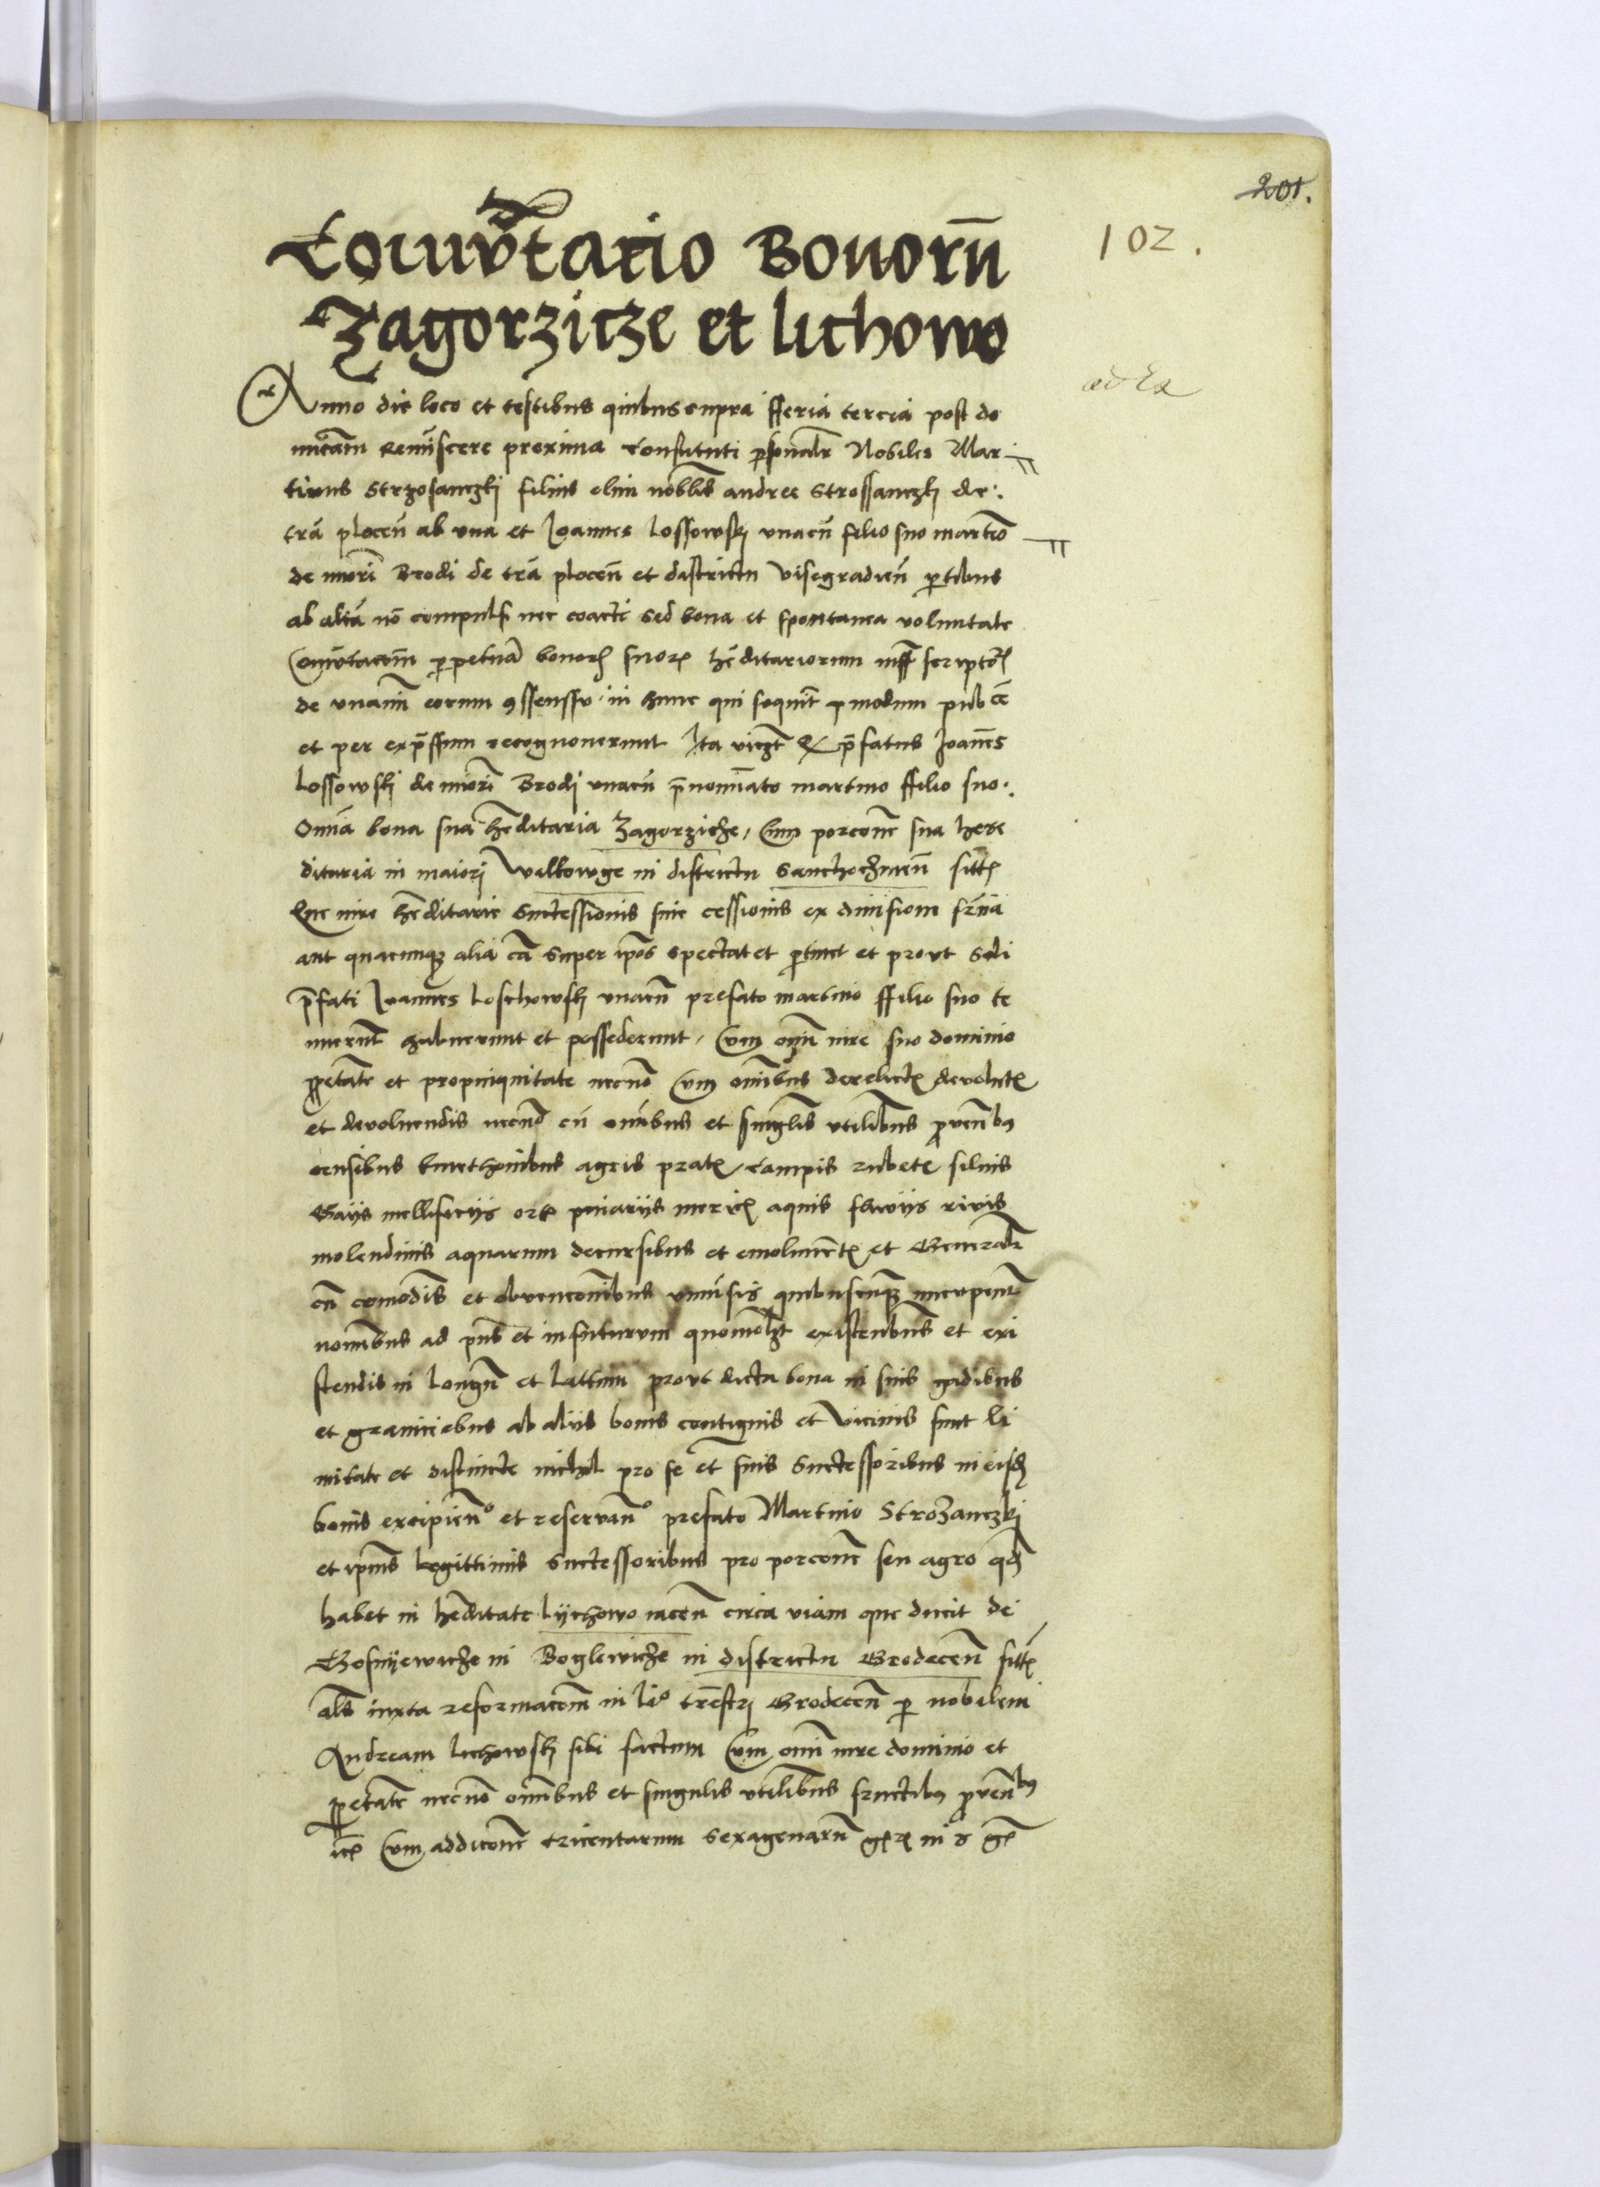 201.
102.
Comutacio Bonorum
Zagorzicze et lichowo
Anno die loco et testibus quibus supra fferia tercia post do
minicam Reminiscere proxima constituti personaliter Nobiles Mar
tinus Strzosanczki filius olim nobilis andree Strossanczki de
terra plocen ab vna et Joannes Lossowski vnacum filio suo martino
de minori Brodi de terra plocen et districtu Visegradien partibus
ab altera non compulsi nec coacti sed bona et spontanea voluntate
Comutacionem perpetuam bonorum suorum hereditariorum infra scriptorum
de vnanimi eorum consensu in hunc qui sequitur modum publice
et per expressum recognouerunt Ita viczt Quod prefatus Joannes
Lossowski de minori Brodi vnacum prenominato martino ffilio suo
Omnia bona sua hereditaria Zagorzicze, cum porcione sua here
ditaria in maiori Wilkowge in districtu Sanchochzinien sittis
Que iure hereditarie Successionis siue cessionis ex diuisione fraterna
aut quacunque alia causa super ipsos spectat et pertinet et prout soli
prefati Joannes Loschowski vnacum prefato martino ffilio suo te
nuerunt habuerunt et possederunt, cum omni iure suo dominio
proprietate et propinquitate necnon cum omnibus derelictis deuolutis
et deuoluendis necnon cum omnibus et singulis vtilitatibus prouentibus
censibus kmethonibus agris pratis campis rubetis siluis
Gaiis mellificiis ortis piniariis mericis aquis fluuiis riuis
molendinis aquarum decursibus et emolumentis et Generaliter
cum comodis et obuencionibus vniuersis quibuscunque nuncupentur
nominibus ad presens et in futurum quomodolibet existentibus et exi
stendis in Longum et Lattum prout dicta bona in suis gadibus
et graniciebus ab aliis bonis contiguis et vicinis sunt li
mitate et distincte nichil pro se et suis Successoribus in eisdem
bonis excipiendo et reseruando prefato Martino Strozanczki
et ipsius Legittimis Successoribus pro porcione seu agro quem
habet in hereditate Lychowo iacen circa viam que ducit de
Gosnyewicze in Boglewicze in districtu Grodecen sittis
alias iuxta reformacionem in libro terrestri Grodecen per nobilem
Andream lichowski sibi factum cum omni iure dominio et
proprietate necnon omnibus et singulis vtilitatibus fructibus prouentibus
item cum addicione tricentarum sexagenarum